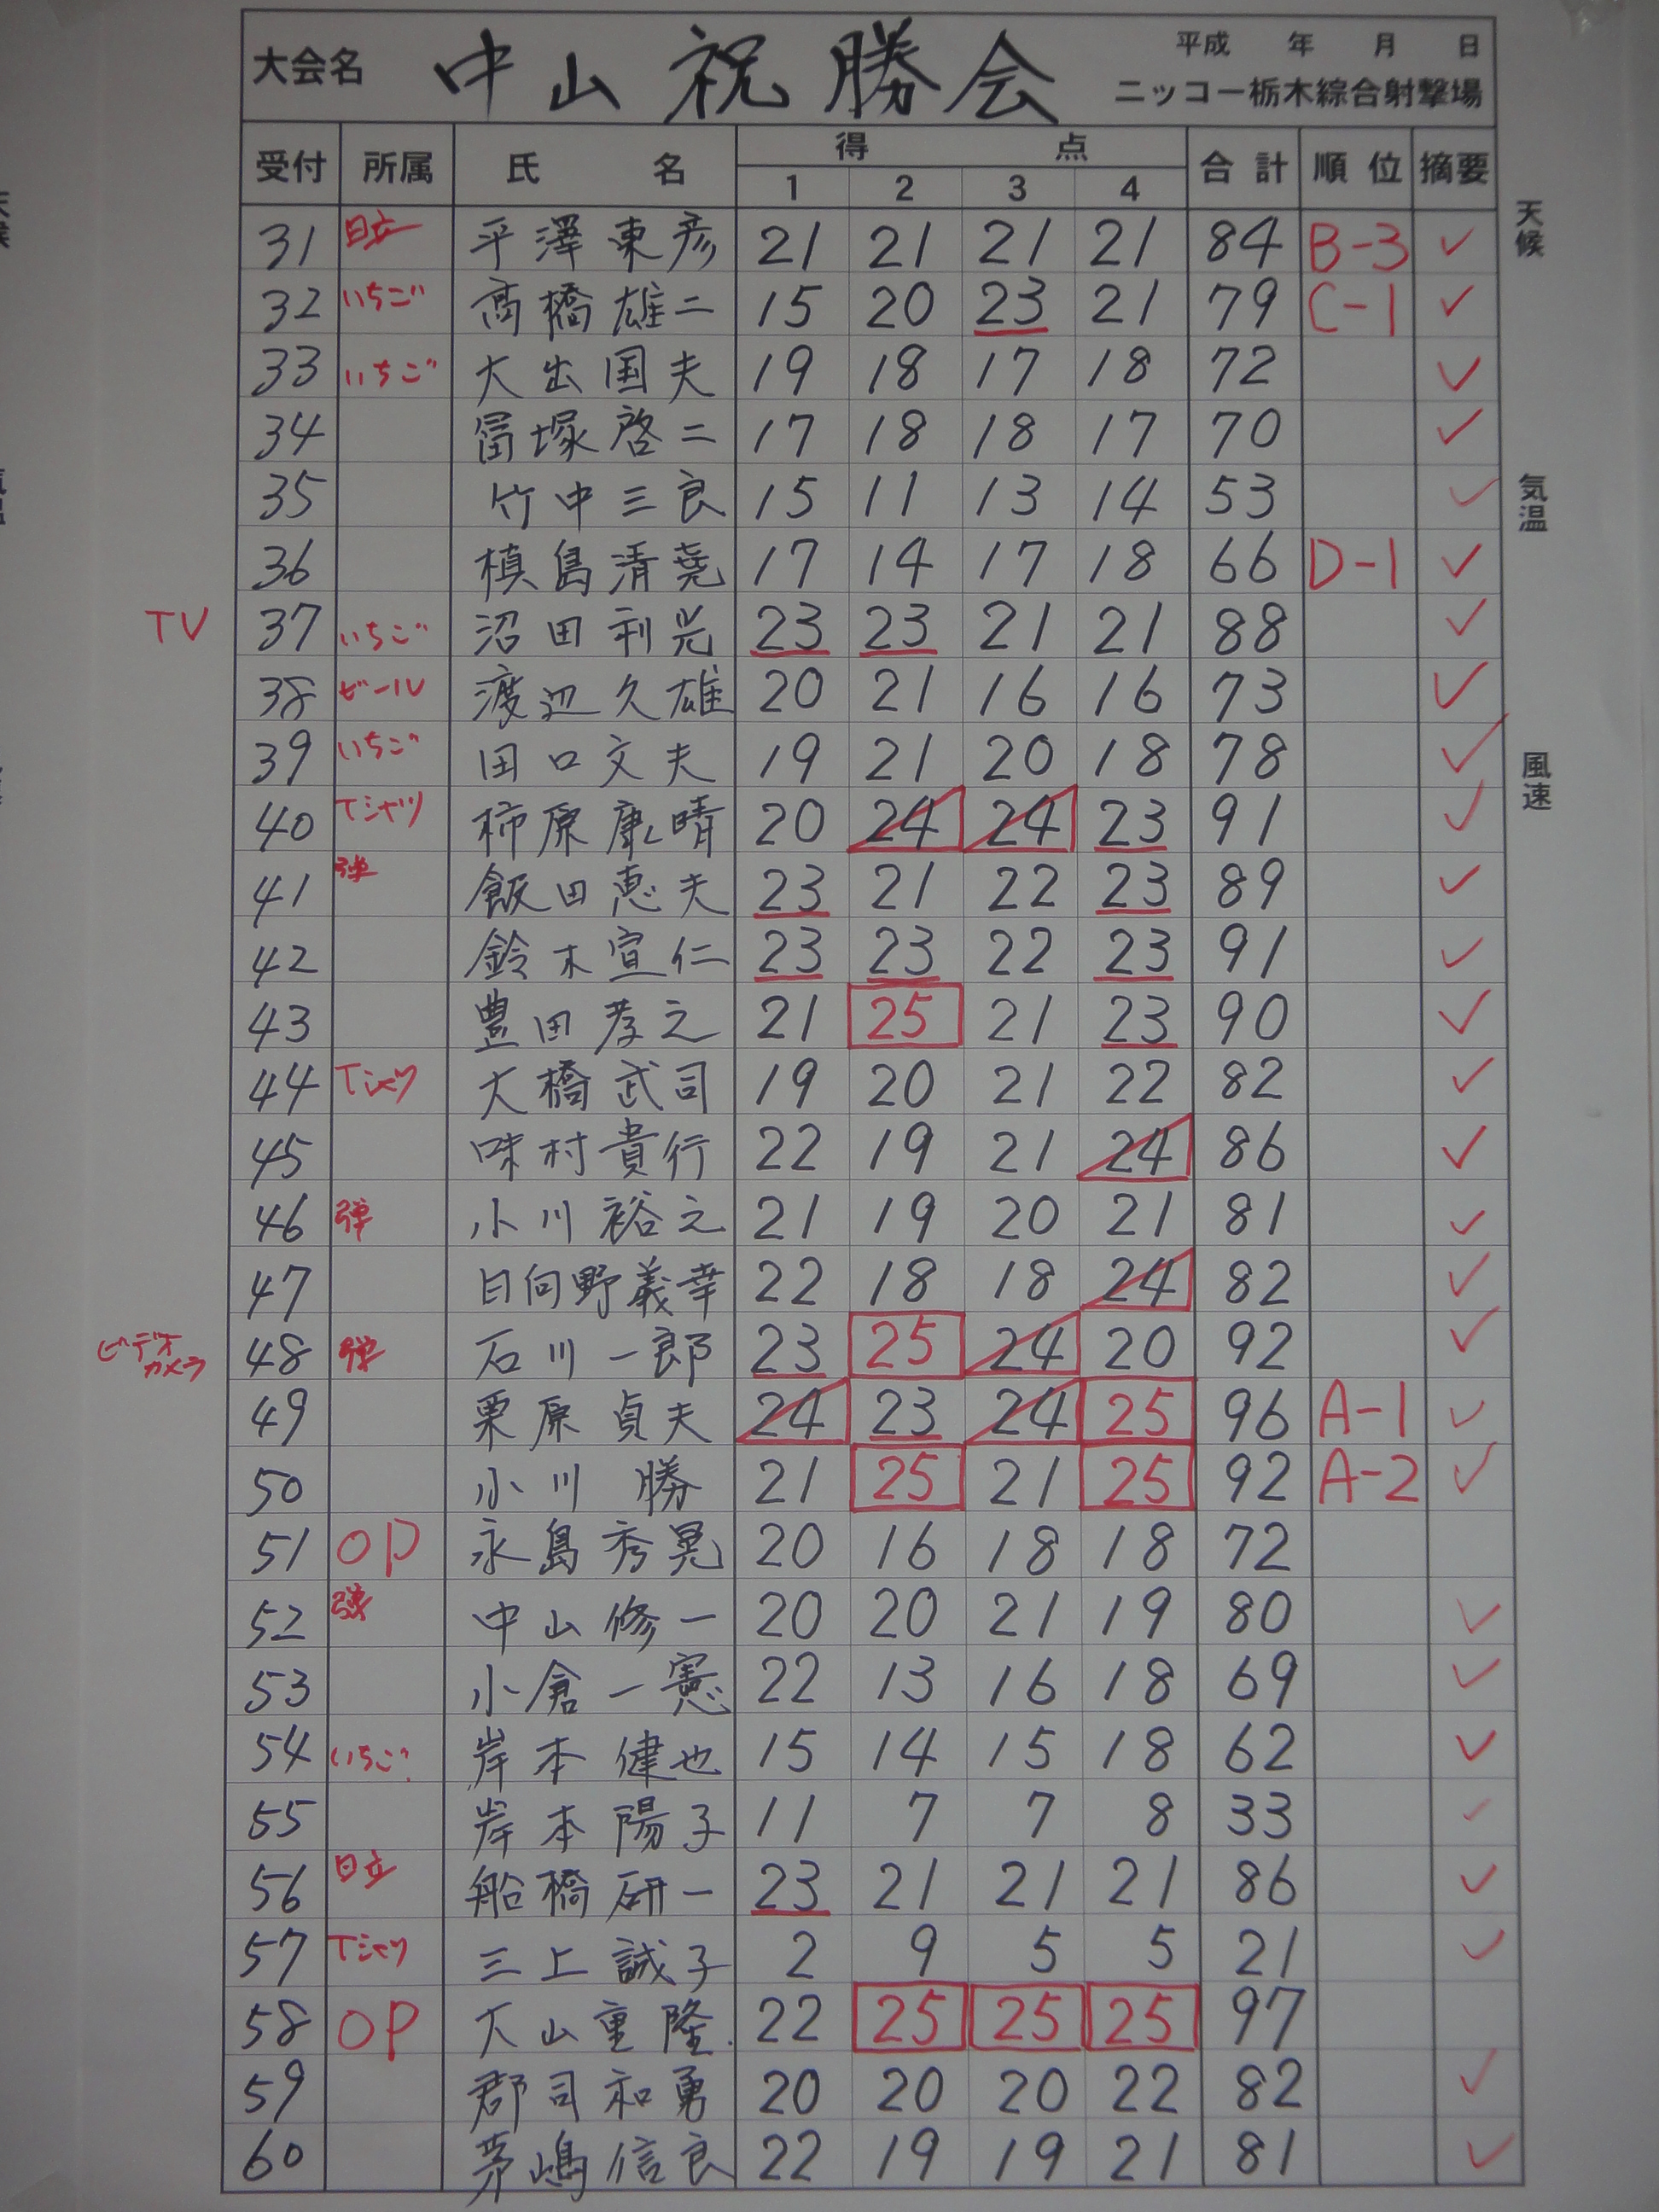 大会名 中山祝勝会 平成 年 月 日
ニッコー栃木綜合射撃場
受付 所属 氏名 得点 合計 順位 摘要
1 2 3 4
31 日立 平澤東彦 21 21 21 21 84 B-3 ✓
32 いちご 高橋雄二 15 20 23 21 79 C-1 ✓
33 いちご 大出国夫 19 18 17 18 72 ✓
34 冨塚啓二 17 18 18 17 70 ✓
35 竹中三良 15 11 13 14 53 ✓
36 槙島清堯 17 14 17 18 66 D-1 ✓
TV 37 いちご 沼田利光 23 23 21 21 88 ✓
38 ビール 渡辺久雄 20 21 16 16 73 ✓
39 いちご 田口文夫 19 21 20 18 78 ✓
40 Tシャツ 柿原康晴 20 24 24 23 91 ✓
41 弾 飯田恵夫 23 21 22 23 89 ✓
42 鈴木宣仁 23 23 22 23 91 ✓
43 豊田孝之 21 25 21 23 90 ✓
44 Tシャツ 大橋武司 19 20 21 22 82 ✓
45 味村貴行 22 19 21 24 86 ✓
46 弾 小川裕之 21 19 20 21 81 ✓
47 日向野義幸 22 18 18 24 82 ✓
ビデオカメラ 48 弾 石川一郎 23 25 24 20 92 ✓
49 栗原貞夫 24 23 24 25 96 A-1 ✓
50 小川勝 21 25 21 25 92 A-2 ✓
51 OP 永島秀晃 20 16 18 18 72
52 弾 中山修一 20 20 21 19 80 ✓
53 小倉一憲 22 13 16 18 69 ✓
54 いちご 岸本健也 15 14 15 18 62 ✓
55 岸本陽子 11 7 7 8 33 ✓
56 日立 船橋研一 23 21 21 21 86 ✓
57 Tシャツ 三上誠子 2 9 5 5 21 ✓
58 OP 大山重隆 22 25 25 25 97
59 郡司和勇 20 20 20 22 82 ✓
60 茅嶋信良 22 19 19 21 81 ✓
天候
気温
風速